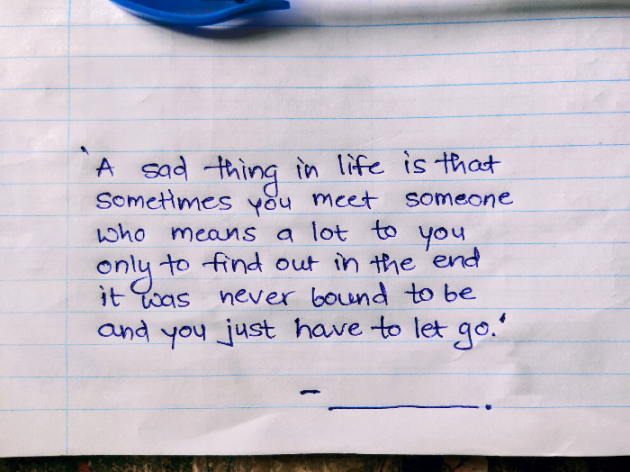 'A sad thing in life is that
sometimes you meet someone
who means a lot to you
only to find out in the end
it was never bound to be
and you just have to let go.'
- __________.